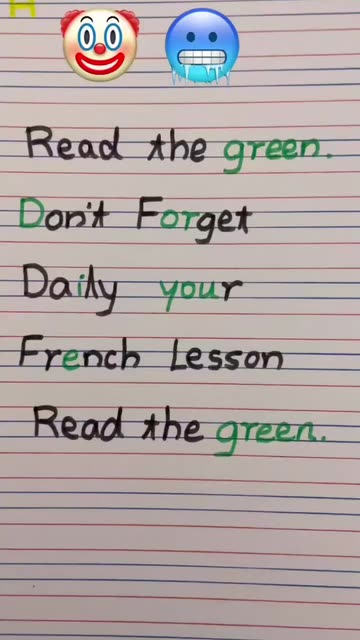 Read the green.
Don't Forget
Daily your
French Lesson
Read the green.